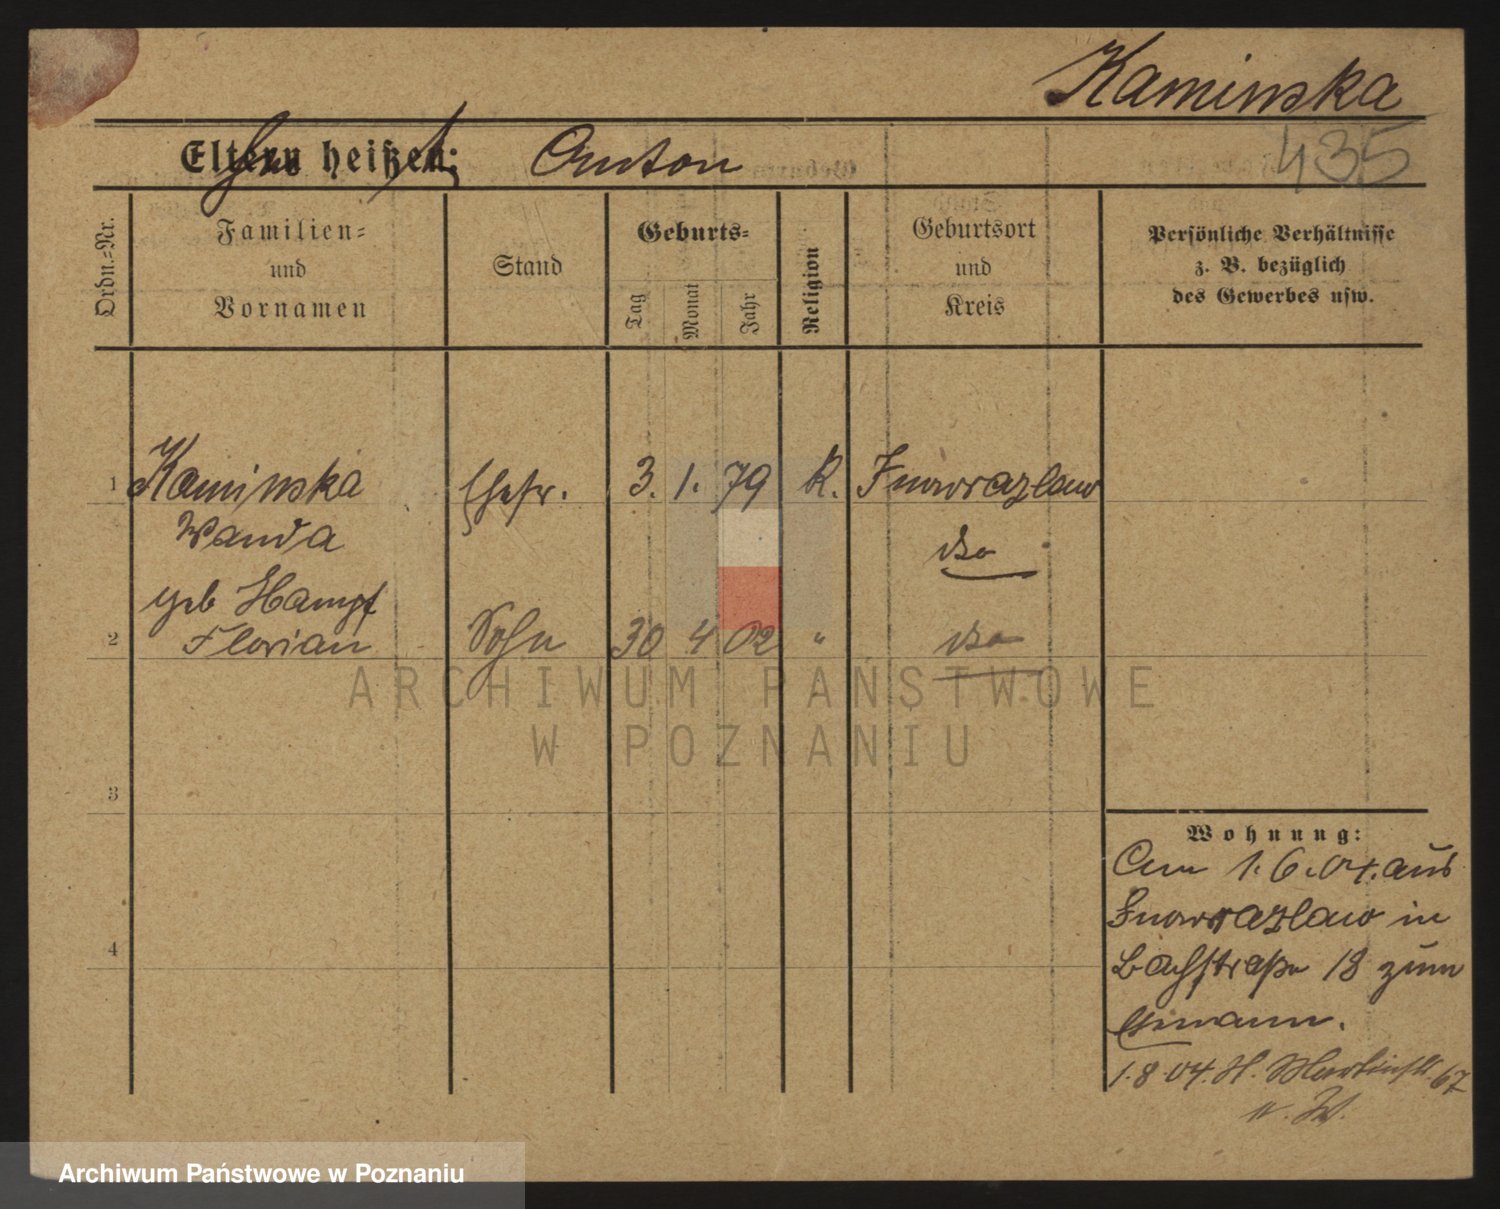 Kaminska
435
Eltern heißen: Anton
Ordn.-Nr.
Familien-
und
Vornamen
Stand
Geburts-
Tag
Monat
Jahr
Religion
Geburtsort
und
Kreis
Persönliche Verhältnisse
z. B. bezüglich
des Gewerbes usw.
1 Kaminska Ehefr. 3. 1. 79 K. Inowrazlaw
Wanda dto
geb Hampf
2 Florian Sohn 30 4 02 " dto
3
4
Wohnung:
Am 1.6.04. aus
Inowrazlaw in
Bachstraße 18 zum
Ehemann.
1.8.04. St. Martinstr. 67
ARCHIWUM PAŃSTWOWE
W POZNANIU
Archiwum Państwowe w Poznaniu